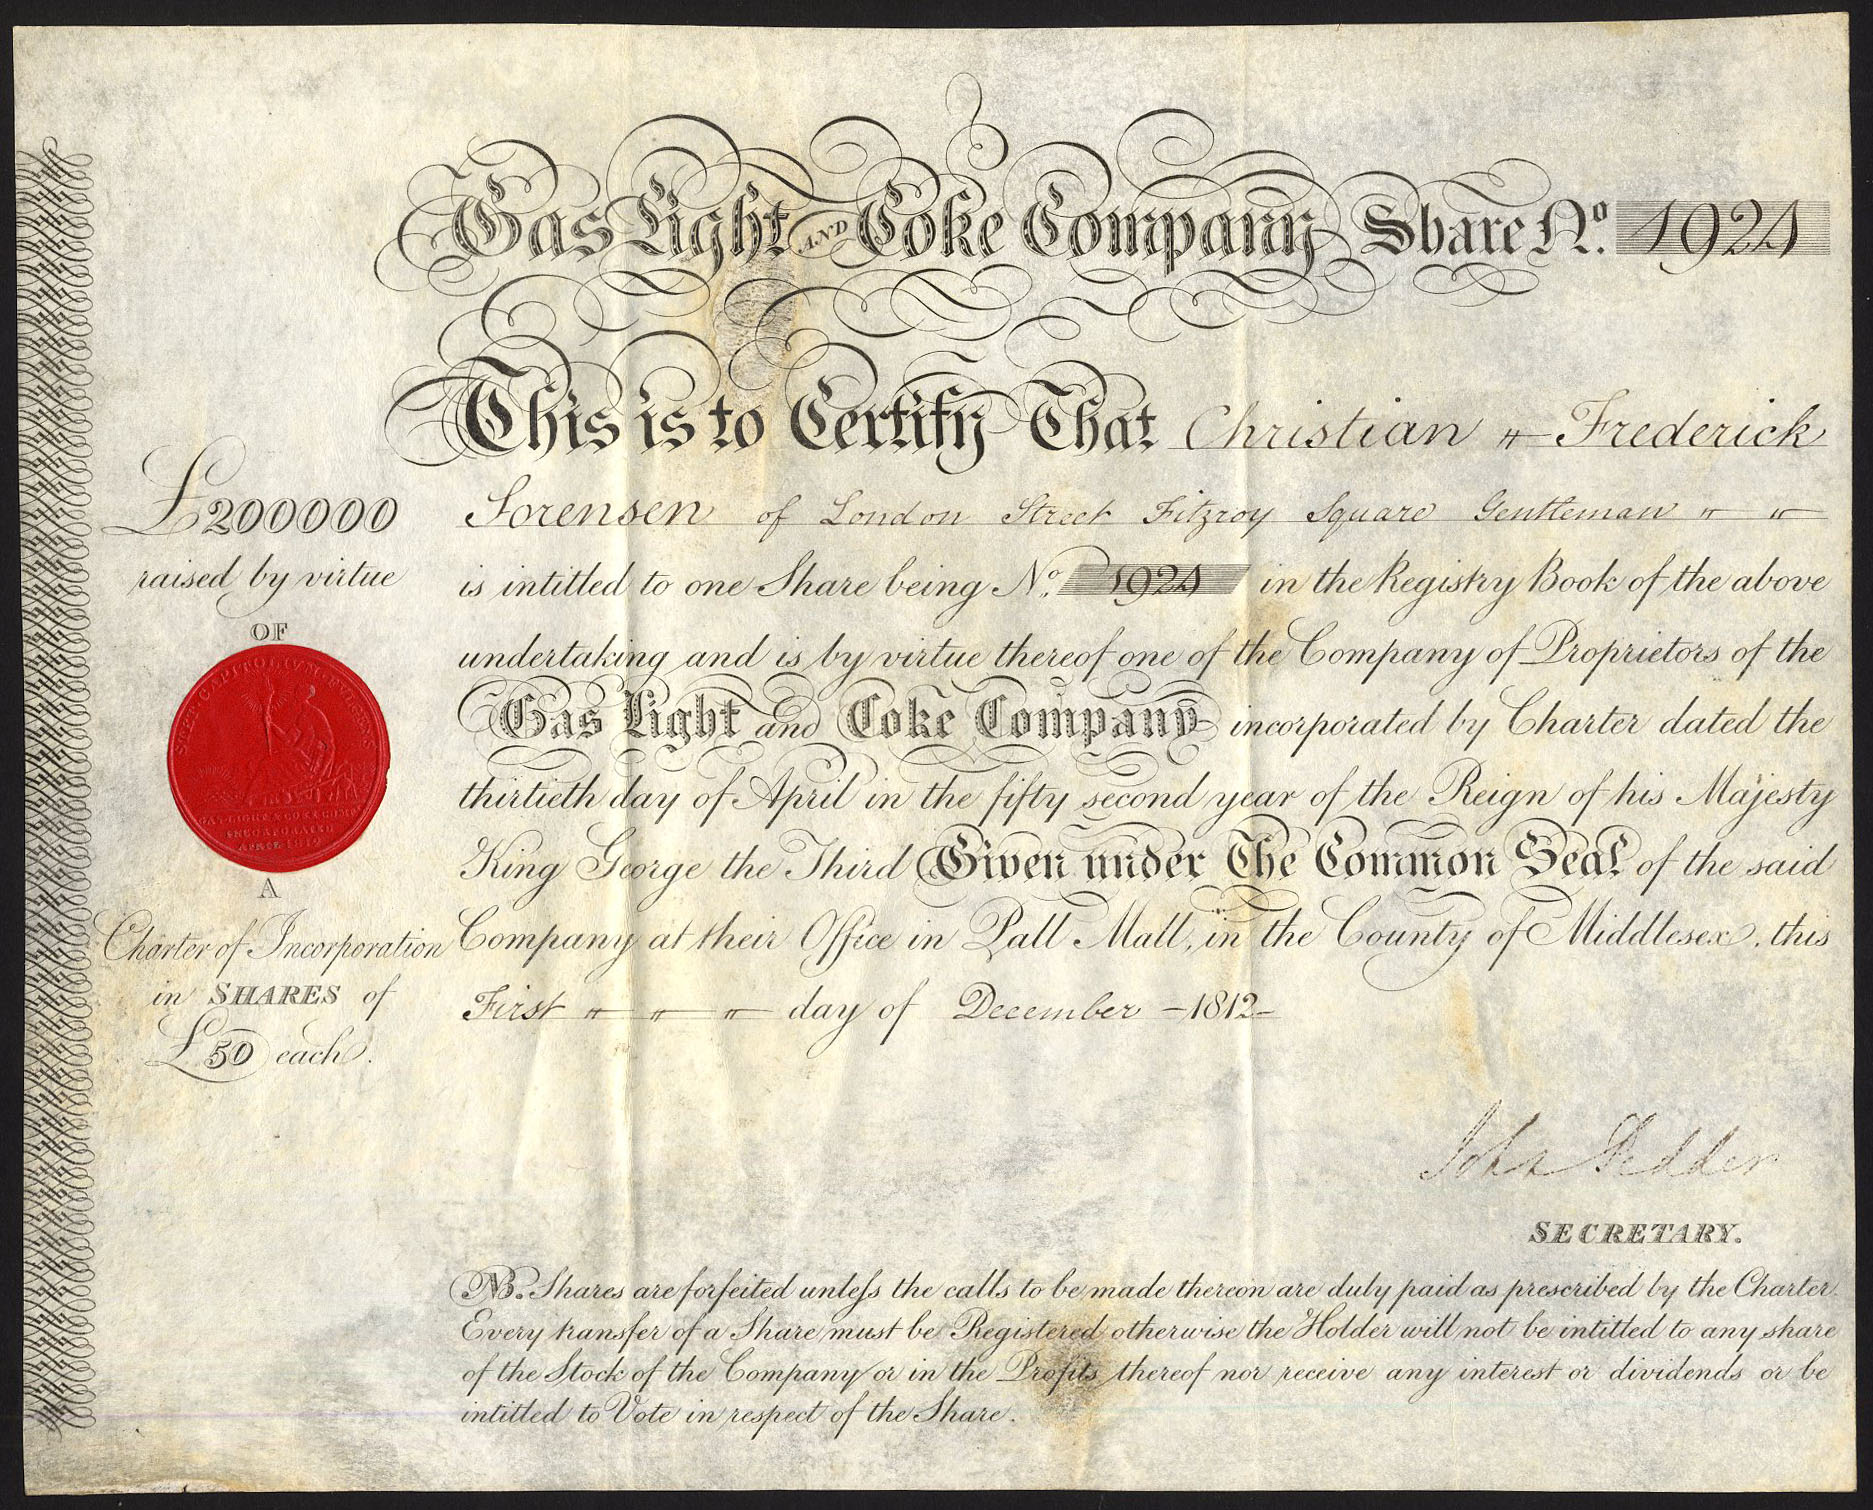 Gas Light AND Coke Company Share No. 1924
This is to Certify That Christian Frederick
Sorensen of London Street Fitzroy Square Gentleman
is intitled to one Share being No. 1924 in the Registry Book of the above
undertaking and is by virtue thereof one of the Company of Proprietors of the
Gas Light and Coke Company incorporated by Charter dated the
thirtieth day of April in the fifty second year of the Reign of his Majesty
King George the Third Given under The Common Seal of the said
Company at their Office in Pall Mall, in the County of Middlesex, this
First day of December -1812-
£200000
raised by virtue
OF
STET CAPITOLIVM FVLGENS
GAS-LIGHT & COKE COMP
INCORPORATED
APRIL 1812
A
Charter of Incorporation
in SHARES of
£50 each.
John
SECRETARY.
NB. Shares are forfeited unless the calls to be made thereon are duly paid as prescribed by the Charter.
Every transfer of a Share must be Registered otherwise the Holder will not be intitled to any share
of the Stock of the Company or in the Profits thereof nor receive any interest or dividends or be
intitled to Vote in respect of the Share.